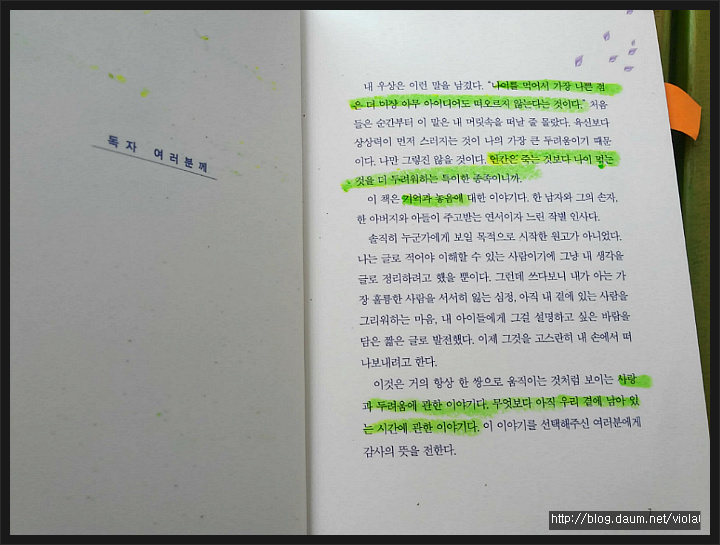 독자 여러분께
내 우상은 이런 말을 남겼다. “나이를 먹어서 가장 나쁜 점
은 더 이상 아무 아이디어도 떠오르지 않는다는 것이다.” 처음
들은 순간부터 이 말은 내 머릿속을 떠날 줄 몰랐다. 육신보다
상상력이 먼저 스러지는 것이 나의 가장 큰 두려움이기 때문
이다. 나만 그렇진 않을 것이다. 인간은 죽는 것보다 나이 먹는
것을 더 두려워하는 특이한 종족이니까.
이 책은 기억과 놓음에 대한 이야기다. 한 남자와 그의 손자,
한 아버지와 아들이 주고받는 연서이자 느린 작별 인사다.
솔직히 누군가에게 보일 목적으로 시작한 원고가 아니었다.
나는 글로 적어야 이해할 수 있는 사람이기에 그냥 내 생각을
글로 정리하려고 했을 뿐이다. 그런데 쓰다보니 내가 아는 가
장 훌륭한 사람을 서서히 잃는 심정, 아직 내 곁에 있는 사람을
그리워하는 마음, 내 아이들에게 그걸 설명하고 싶은 바람을
담은 짧은 글로 발전했다. 이제 그것을 고스란히 내 손에서 떠
나보내려고 한다.
이것은 거의 항상 한 쌍으로 움직이는 것처럼 보이는 사랑
과 두려움에 관한 이야기다. 무엇보다 아직 우리 곁에 남아 있
는 시간에 관한 이야기다. 이 이야기를 선택해주신 여러분에게
감사의 뜻을 전한다.
7
http://blog.daum.net/violai